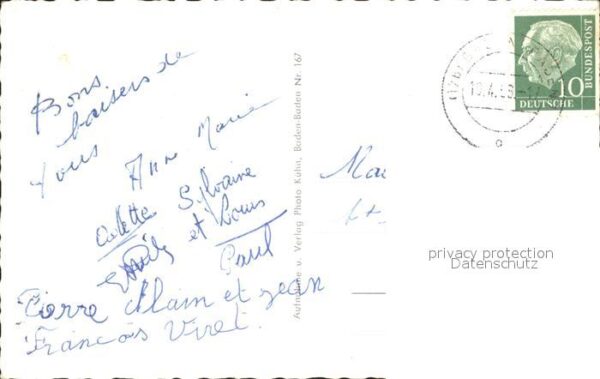 Bons
baisers de
tous
Anne Marie
Colette Sylvaine
et Louis
Paul
Pierre Alain et Jean
François Viret.
Aufnahme u. Verlag Photo Kuhn, Baden-Baden Nr. 167
DEUTSCHE
BUNDESPOST
10
privacy protection
Datenschutz